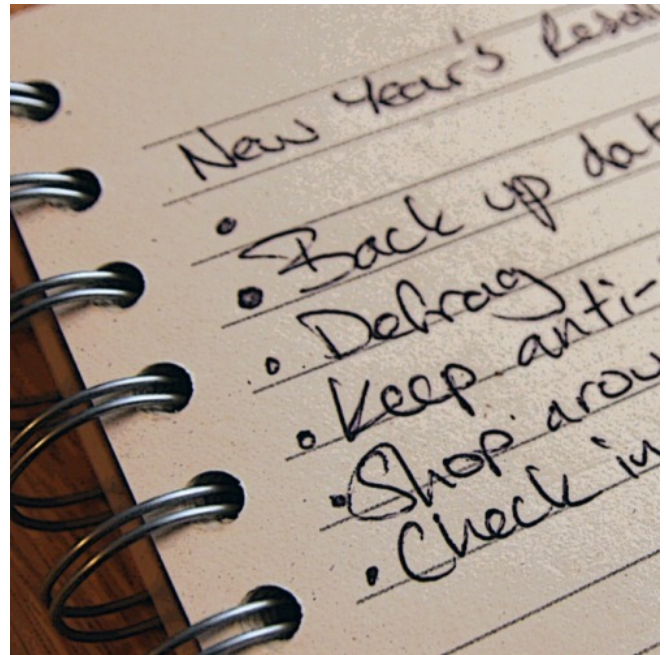 New Year's Resol
• Back up dat
• Defrag
• Keep anti-
• Shop arou
• Check in